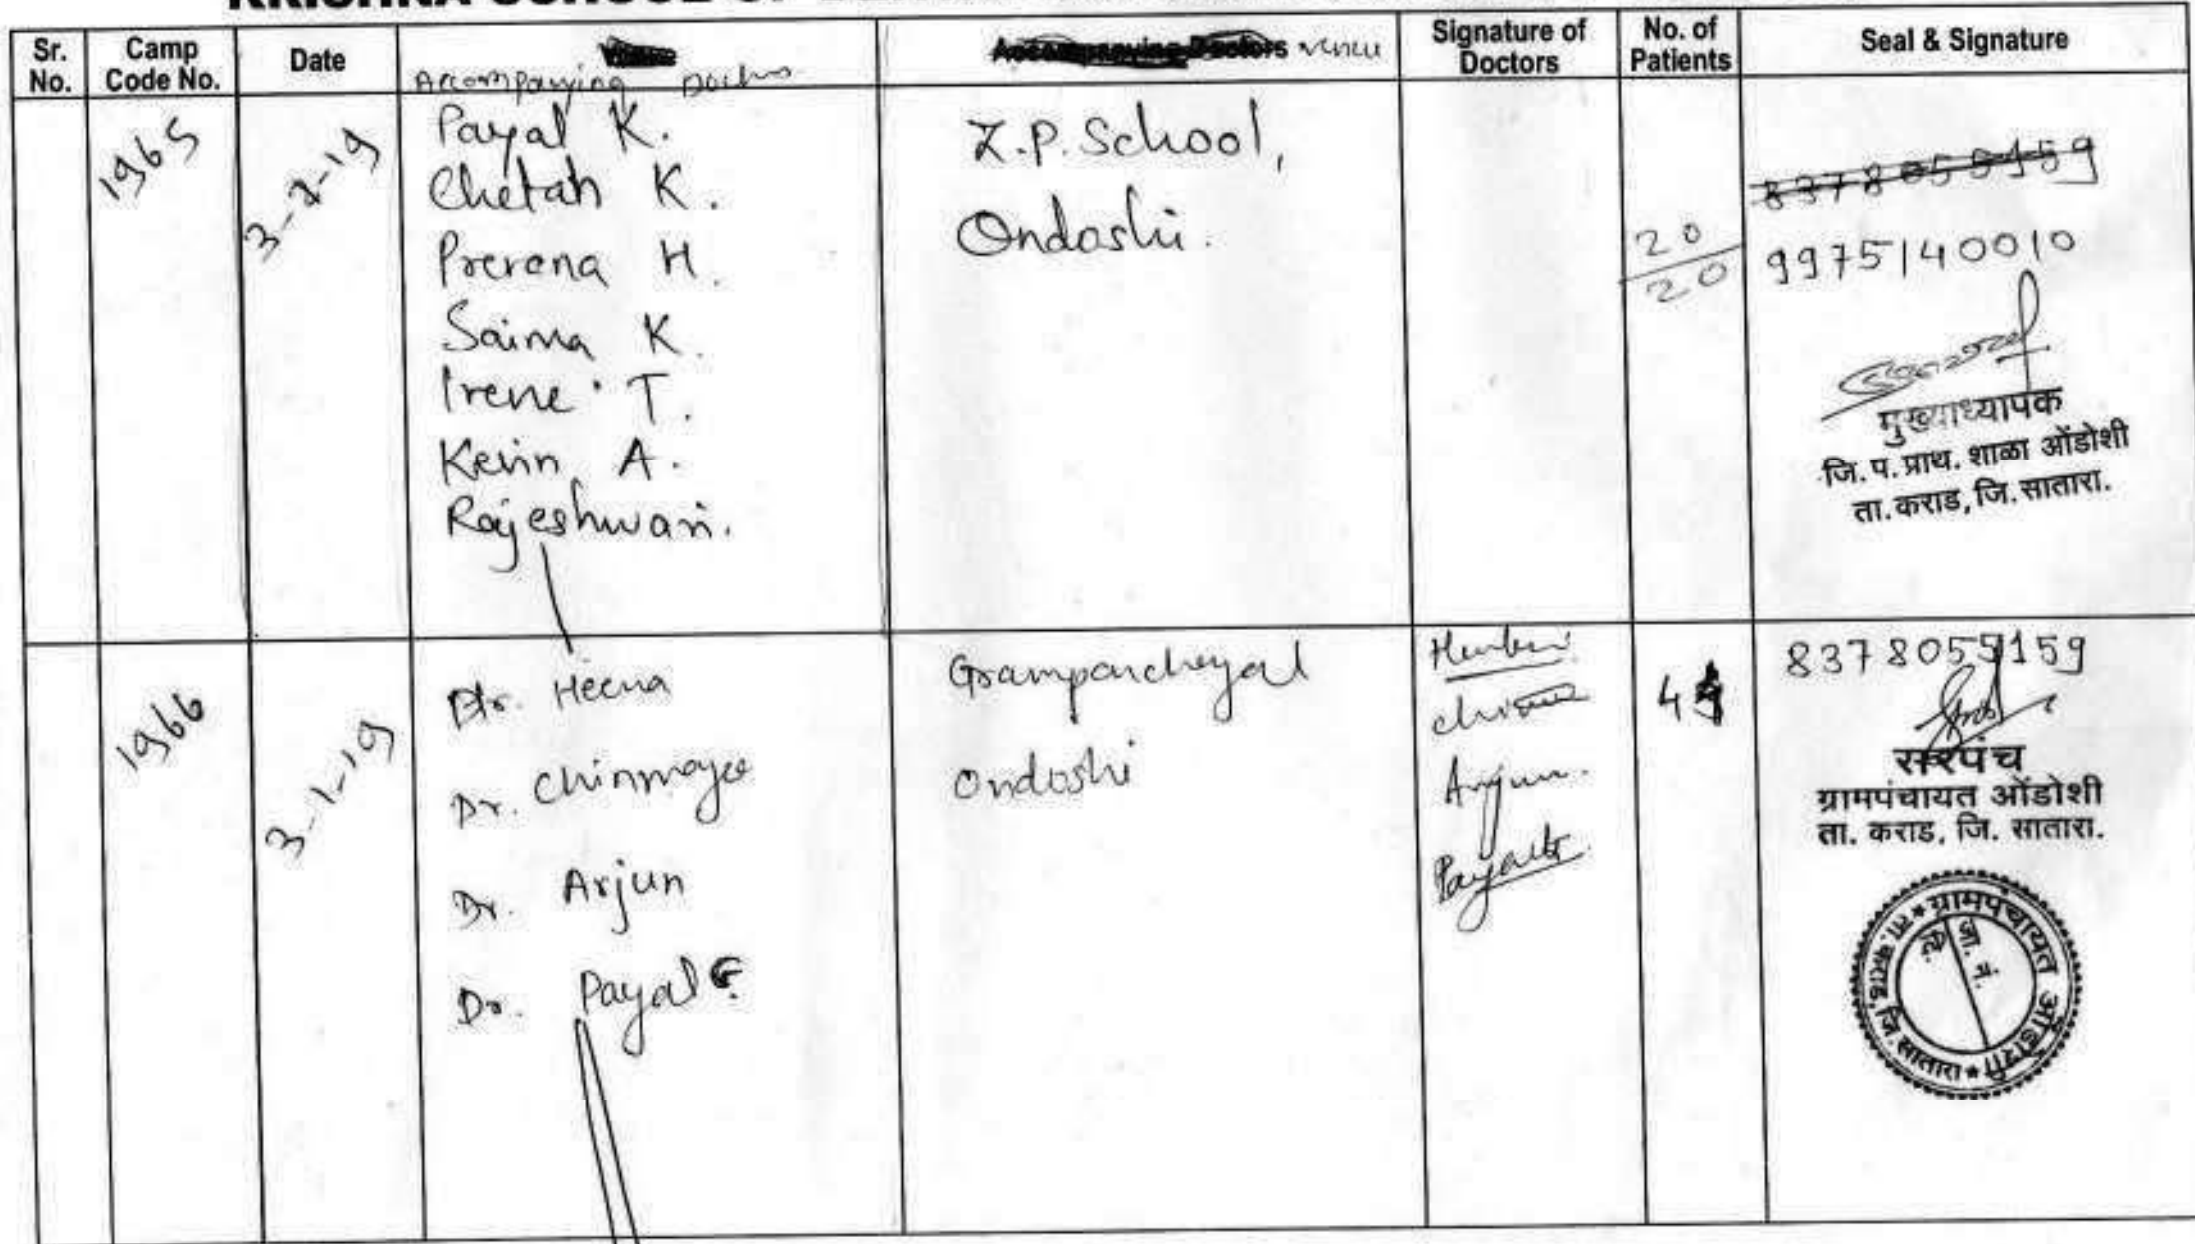 KRISHNA SCHOOL OF
Sr. No. Camp Code No. Date Accompanying Doctors Accompanying Doctors venue Signature of Doctors No. of Patients Seal & Signature
1965
3-2-19
Payal K.
Chetan K.
Prerana H.
Saima K.
Irene T.
Kevin A.
Rajeshwari.
Z.P. School,
Ondoshi.
20
20
8378055159
9975140010
मुख्याध्यापक
जि. प. प्राथ. शाळा ओंडोशी
ता. कराड, जि. सातारा.
1966
3-1-19
Dr. Heena
Dr. Chinmayee
Dr. Arjun
Dr. Payal
Grampanchayat
Ondoshi
Arjun
8378055159
सरपंच
ग्रामपंचायत ओंडोशी
ता. कराड, जि. सातारा.
ग्रामपंचायत ओंडोशी * ता. कराड, जि. सातारा *
जा. नं.